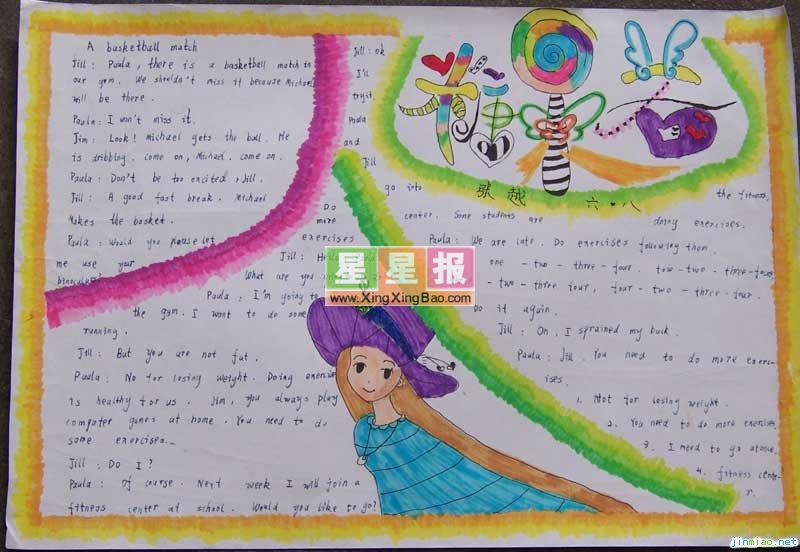 A basketball match
Jill: Paula, there is a basketball match in
our gym. We shouldn't miss it because Michael
will be there.
Paula: I won't miss it.
Jim: Look! michael gets the ball. He
is dribbling. come on, Michael. come on.
Paula: Don't be too excited, Jill.
Jill: A good fast break. Michael
Makes the basket.
Paula: Would you please let
me use your
binocul
Jill:
What are you
Paula: I'm going to
the gym. I want to do some
running.
Jill: But you are not fat.
Paula: No for losing weight. Doing exercise
is healthy for us. Jim, you always play
computer games at home. You need to do
some exercises.
Jill: Do I?
Paula: Of course. Next week I will join a
fitness center at school. Would you like to go?
Jill: ok
I'll
try it.
Paula
and
Jill
go into
the fitness
center. Some students are
doing exercises.
Paula: We are late. Do exercises following them.
one - two - three - four. tow - two - three - four,
- two - three four, four - two - three - four.
Do it again.
Jill: Oh, I sprained my back.
Paula: Jill. You need to do more exerc-
ises.
Do
more
exercises
1. Not for losing weight.
2. You need to do more exercises
3. I need to go at once.
4. fitness cente-
r.
张越 六.八
星星报
www.XingXingBao.com
jinmiao.net